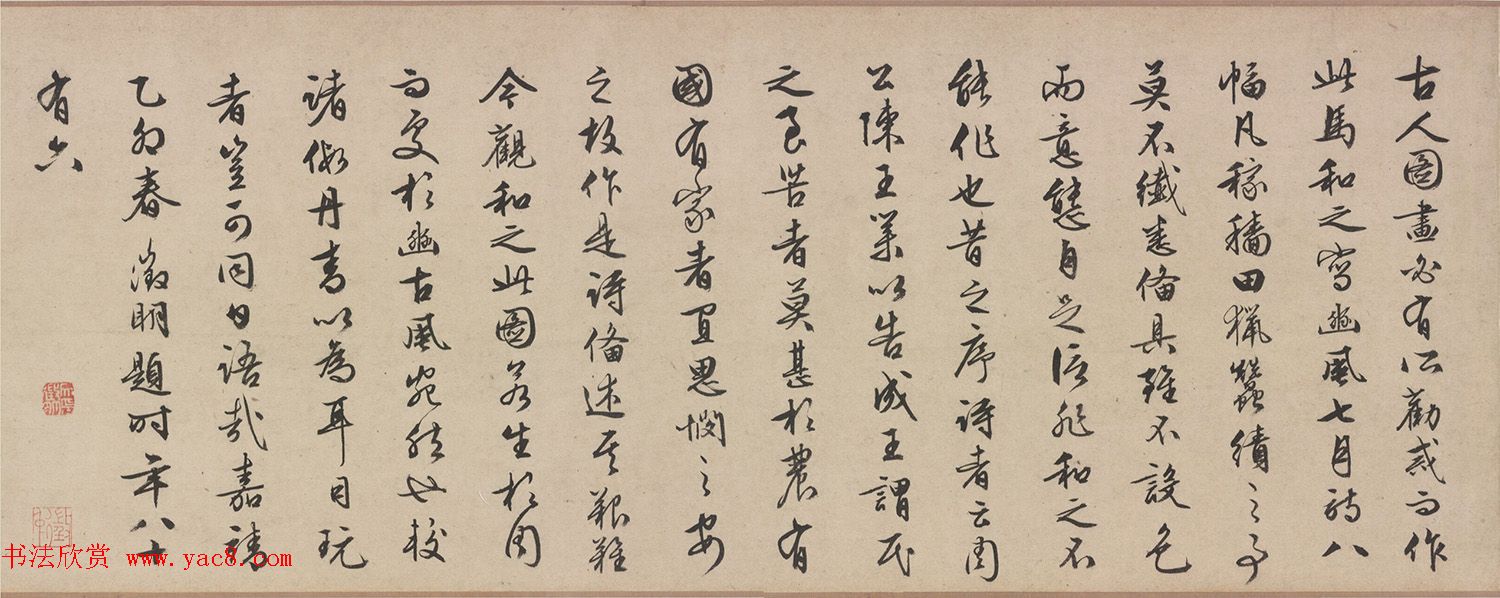 古人图画必有所劝戒而作
此馬和之寫豳風七月詩八
幅凡稼穡田獵蠶績之事
莫不纖悉備具雖不設色
而意態自足信非和之不
能作也昔之序詩者云周
公陳王業以告成王謂民
之至苦者莫甚於農有
國有家者宜思憫之安
之故作是詩備述其艱難
今觀和之此圖若生於周
而處於豳古風宛然也較
諸假丹青以為耳目玩
者豈可同日語哉嘉靖
乙卯春 徵明題時年八十
有六
书法欣赏 www.yac8.com